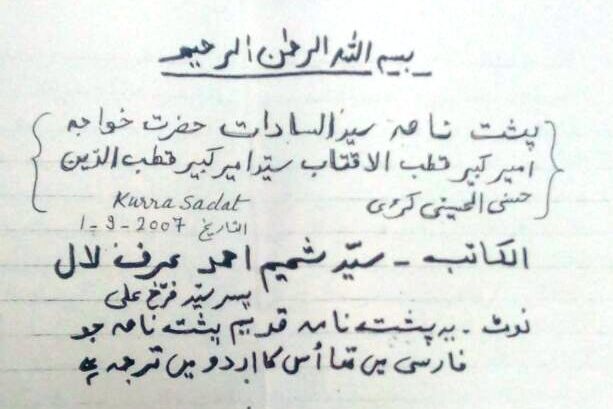 بسم اللہ الرحمٰن الرحیم
پشت نامہ سیدالسادات حضرت خواجہ
امیر کبیر قطب الاقتاب سیّد امیر کبیر قطب الدّین
حسنی الحسینی کڑوی Kurra Sadat
التاریخ 1-9-2007
الکاتب - سیّد شمیم احمد عرف لال
پسر سیّد فرّخ علی
نوٹ - یہ پشت نامہ قدیم پشت نامہ جو
فارسی میں تھا اُس کا اردو میں ترجمہ ہے